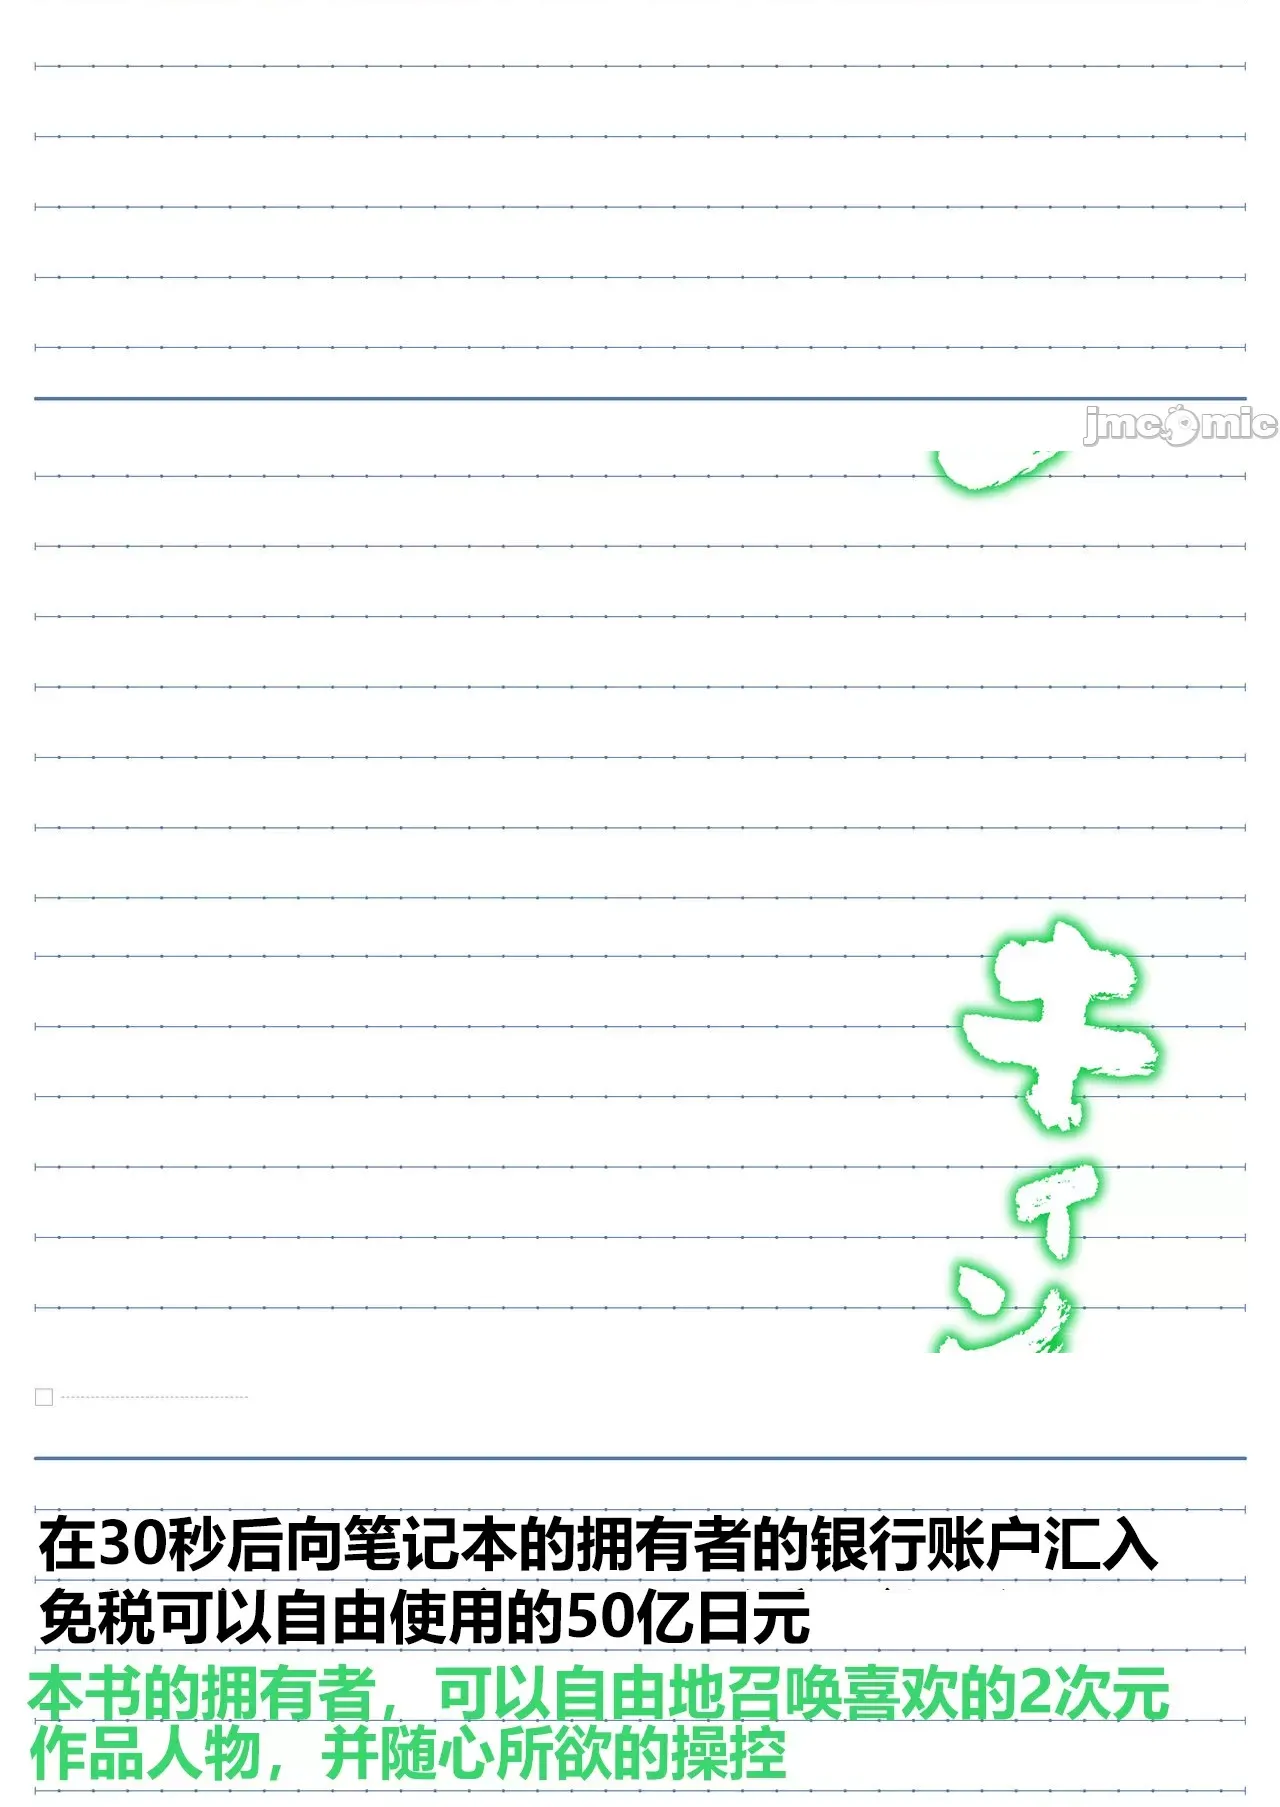 jmcomic
キィン
在30秒后向笔记本的拥有者的银行账户汇入
免税可以自由使用的50亿日元
本书的拥有者，可以自由地召唤喜欢的2次元
作品人物，并随心所欲的操控